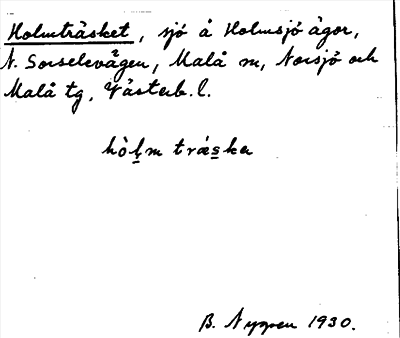 Holmträsket, sjö å Holmsjö ägor,
N. Sorselevägen, Malå sn, Norsjö och
Malå tg, Västerb. l.
hòl̠m trás̠ka
B. Nygren 1930.